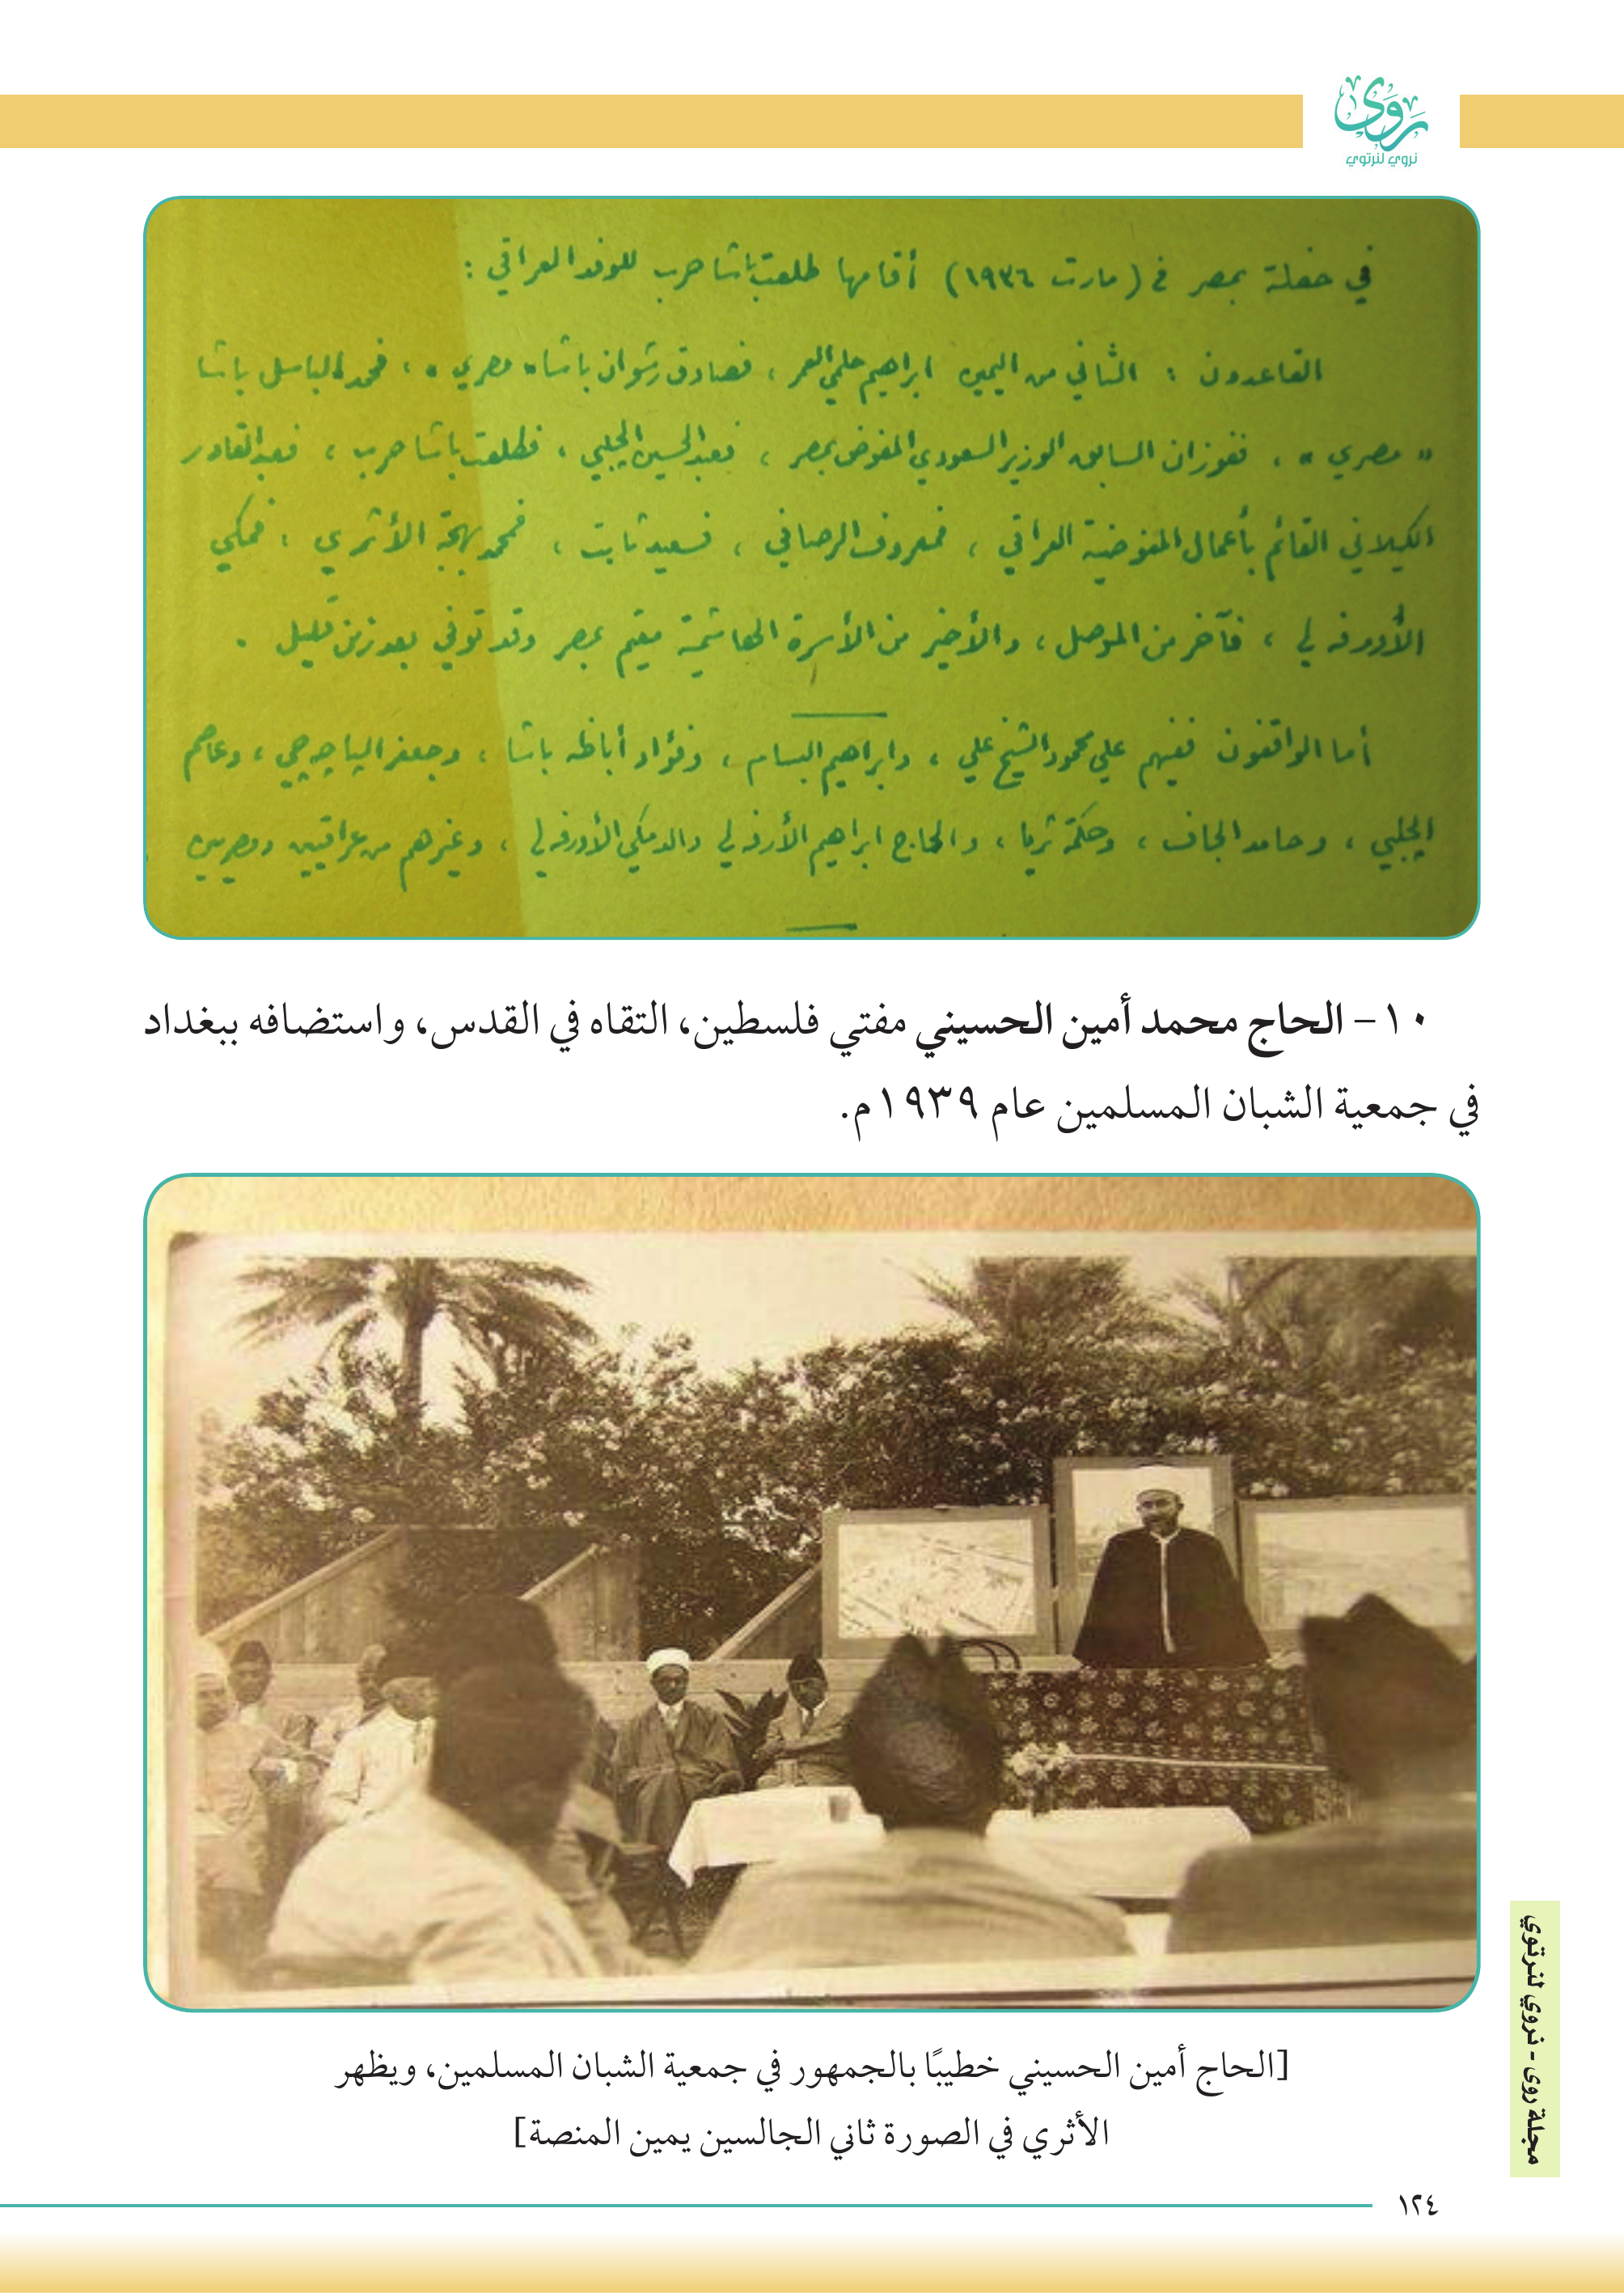 روى
نروي لنرتوي
في حفلة بمصر في (مارت ١٩٣٦) أقامها طلعت باشا حرب للوفد العراقي :
القاعدون : الثاني من اليمين ابراهيم حلمي العمر ، فصادق رشوان باشا « مصري » ، فمحمد الباسل باشا
« مصري » ، ففوزان السابق الوزير السعودي المفوض بمصر ، فعبد الحسين الچلبي ، فطلعت باشا حرب ، فعبد القادر
الكيلاني القائم بأعمال المفوضية العراقي ، فمعروف الرصافي ، فسعيد ثابت ، فمحمد بهجة الأثري ، فمكي
الأورفه لي ، فآخر من الموصل ، والأخير من الأسرة الهاشمية مقيم بمصر وقد توفي بعد زمن قليل .
أما الواقفون ففيهم علي محمود الشيخ علي ، وابراهيم البسام ، وفؤاد أباظه باشا ، وجعفر الپاچه چي ، وعاصم
الچلبي ، وحامد الجاف ، وحكمة ثريا ، والحاج ابراهيم الأرفه لي والد مكي الأورفه لي ، وغيرهم من عراقيين ومصريين
١٠ – الحاج محمد أمين الحسيني مفتي فلسطين، التقاه في القدس، واستضافه ببغداد
في جمعية الشبان المسلمين عام ١٩٣٩م.
[الحاج أمين الحسيني خطيبًا بالجمهور في جمعية الشبان المسلمين، ويظهر
الأثري في الصورة ثاني الجالسين يمين المنصة]
مجلة روى - نروي لنرتوي
١٢٤